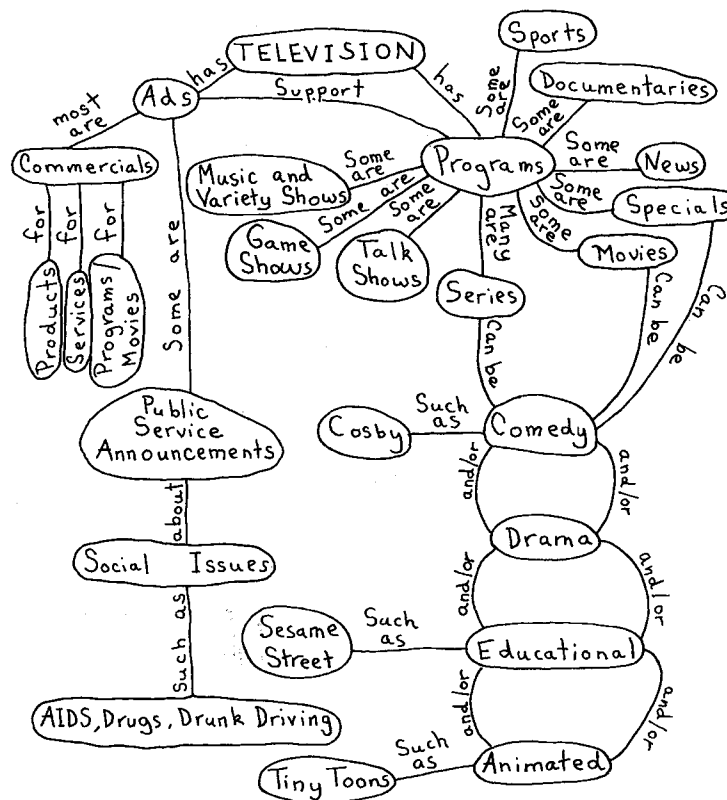 TELEVISION
has
has
Ads
Support
most
are
Commercials
for
for
for
Products
Services
Programs/
Movies
Some are
Public
Service
Announcements
about
Social Issues
Such as
AIDS, Drugs, Drunk Driving
Programs
Some
are
Sports
Some
are
Documentaries
Some
are
News
Some
are
Specials
Some
are
Movies
Some
are
Music and
Variety Shows
Some are
Game
Shows
Some
are
Talk
Shows
Many
are
Series
Can be
Can be
Can be
Comedy
Such
as
Cosby
and/or
and/or
Drama
and/or
and/or
Educational
Such
as
Sesame
Street
and/or
and/or
Animated
Such
as
Tiny Toons